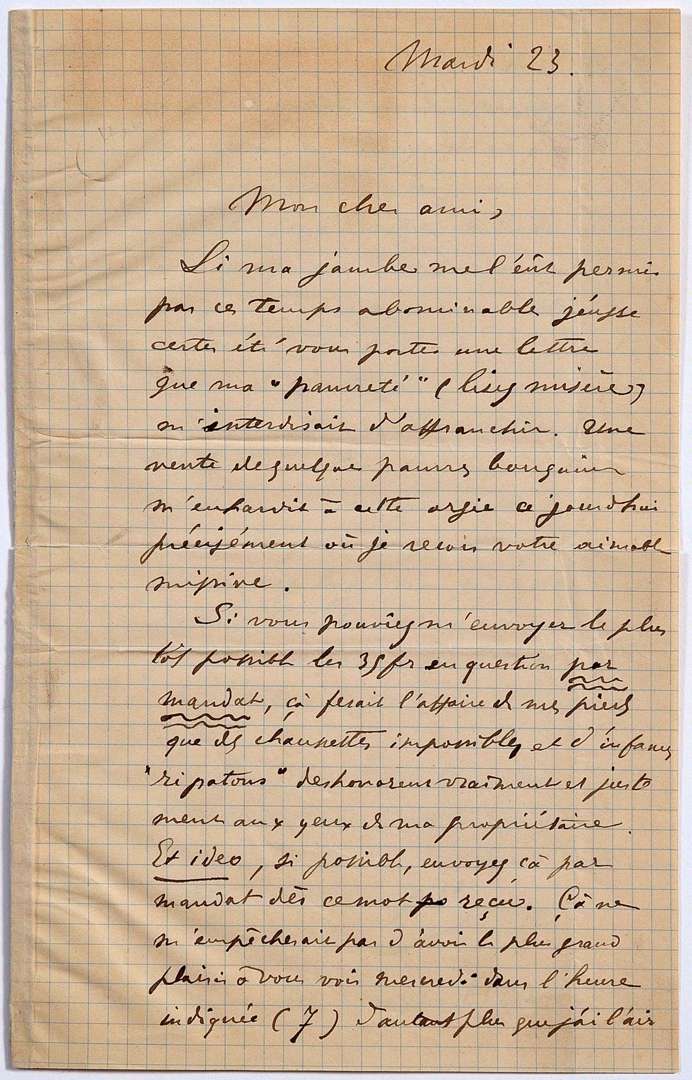 Mardi 23.
Mon cher ami,
Si ma jambe me l'eût permis
par ces temps abominables j'eusse
certes été vous porter une lettre
que ma "pauvreté" (lisez misère)
m'interdisait d'affranchir. Une
vente de quelques pauvres bouquins
m'enhardit à cette orgie ce jourd'hui
précisément où je reçois votre aimable
missive.
Si vous pouviez m'envoyer le plus
tôt possible les 35 fr en question par
mandat, çà ferait l'affaire de mes pieds
que des chaussettes impossibles et d'infames
"ripatons" deshonorent vraiment et juste
ment aux yeux de ma propriétaire.
Et ideo, si possible, envoyez çà par
mandat dès ce mot reçu. Çà ne
m'empêcherait pas d'avoir le plus grand
plaisir à vous voir mercredi dans l'heure
indiquée (7) d'autant plus que j'ai l'air